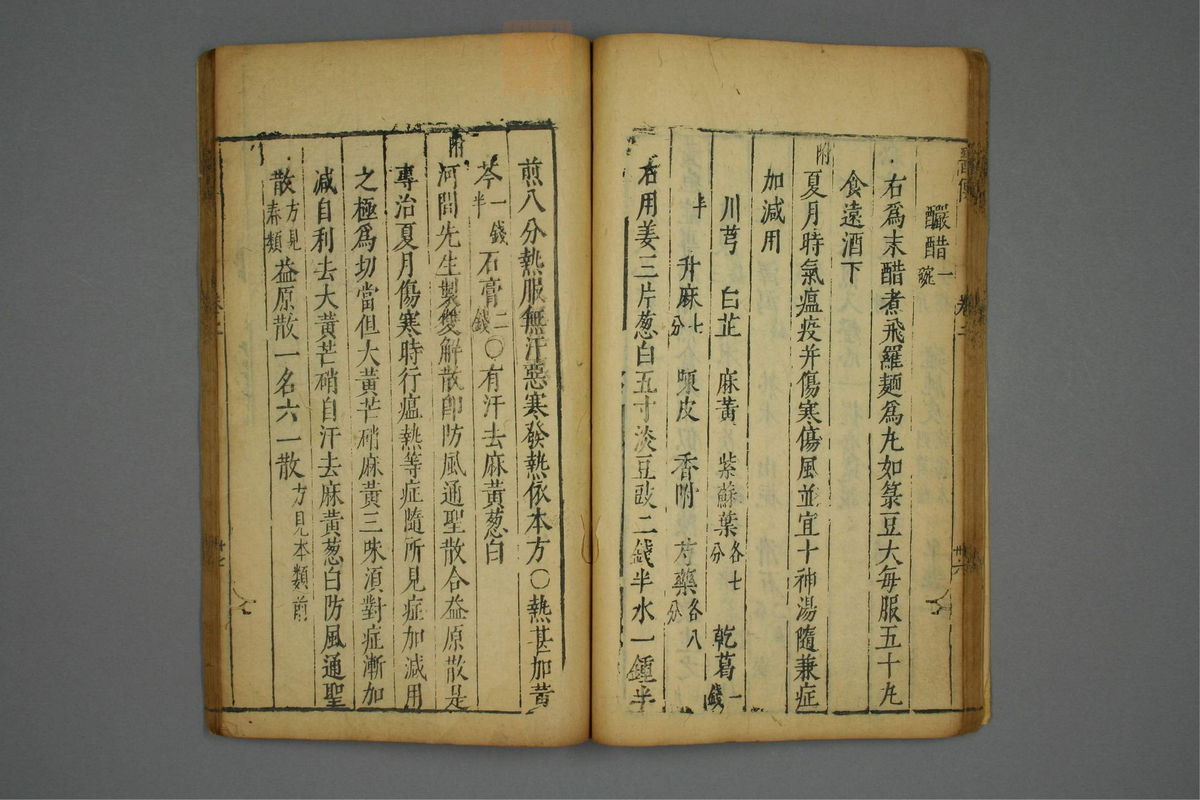 釅醋一碗
右爲末醋煮飛羅麵爲尢如菉豆大每服五十尢
食遠酒下
附夏月時氣瘟疫并傷寒傷風並宜十神湯隨兼症
加減用
川芎 白芷 麻黃 紫蘇葉各七分 乾葛一錢
半 升麻七分 陳皮 香附 芍藥各八分
右用姜三片葱白五寸淡豆豉二錢半水一鍾半
煎八分熱服無汗惡寒發熱依本方〇熱甚加黃
芩一錢半石膏二錢〇有汗去麻黃葱白
附河間先生製雙解散卽防風通聖散合益原散是
專治夏月傷寒時行瘟熱等症隨所見症加減用
之極爲切當但大黃芒硝麻黃三味須對症漸加
減自利去大黃芒硝自汗去麻黃葱白防風通聖
散方見春類益原散一名六一散方見本類前
卷二